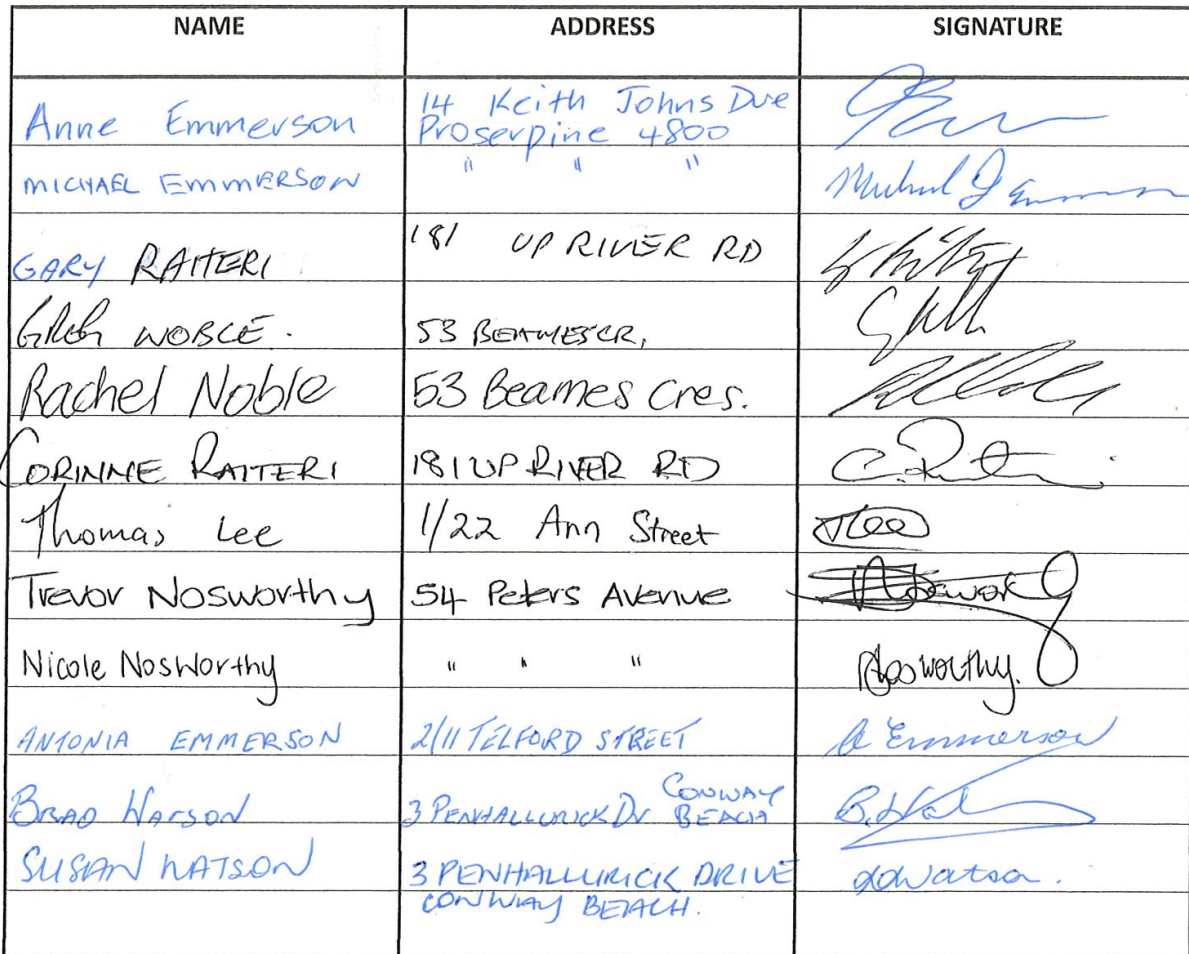 NAME ADDRESS SIGNATURE
Anne Emmerson 14 Keith Johns Dve
Proserpine 4800
MICHAEL EMMERSON " " " Michael J Emmerson
GARY RAITERI 181 UP RIVER RD
GREG NOBLE. 53 BEAMES CR,
Rachel Noble 53 Beames Cres.
CORINNE RAITERI 181 UP RIVER RD
Thomas Lee 1/22 Ann Street TLee
Trevor Nosworthy 54 Peters Avenue
Nicole Nosworthy " " " Nosworthy.
ANTONIA EMMERSON 2/11 TELFORD STREET A Emmerson
BRAD WATSON 3 PENHALLURICK Dv CONWAY
BEACH
SUSAN WATSON 3 PENHALLURICK DRIVE Watson.
CONWAY BEACH.